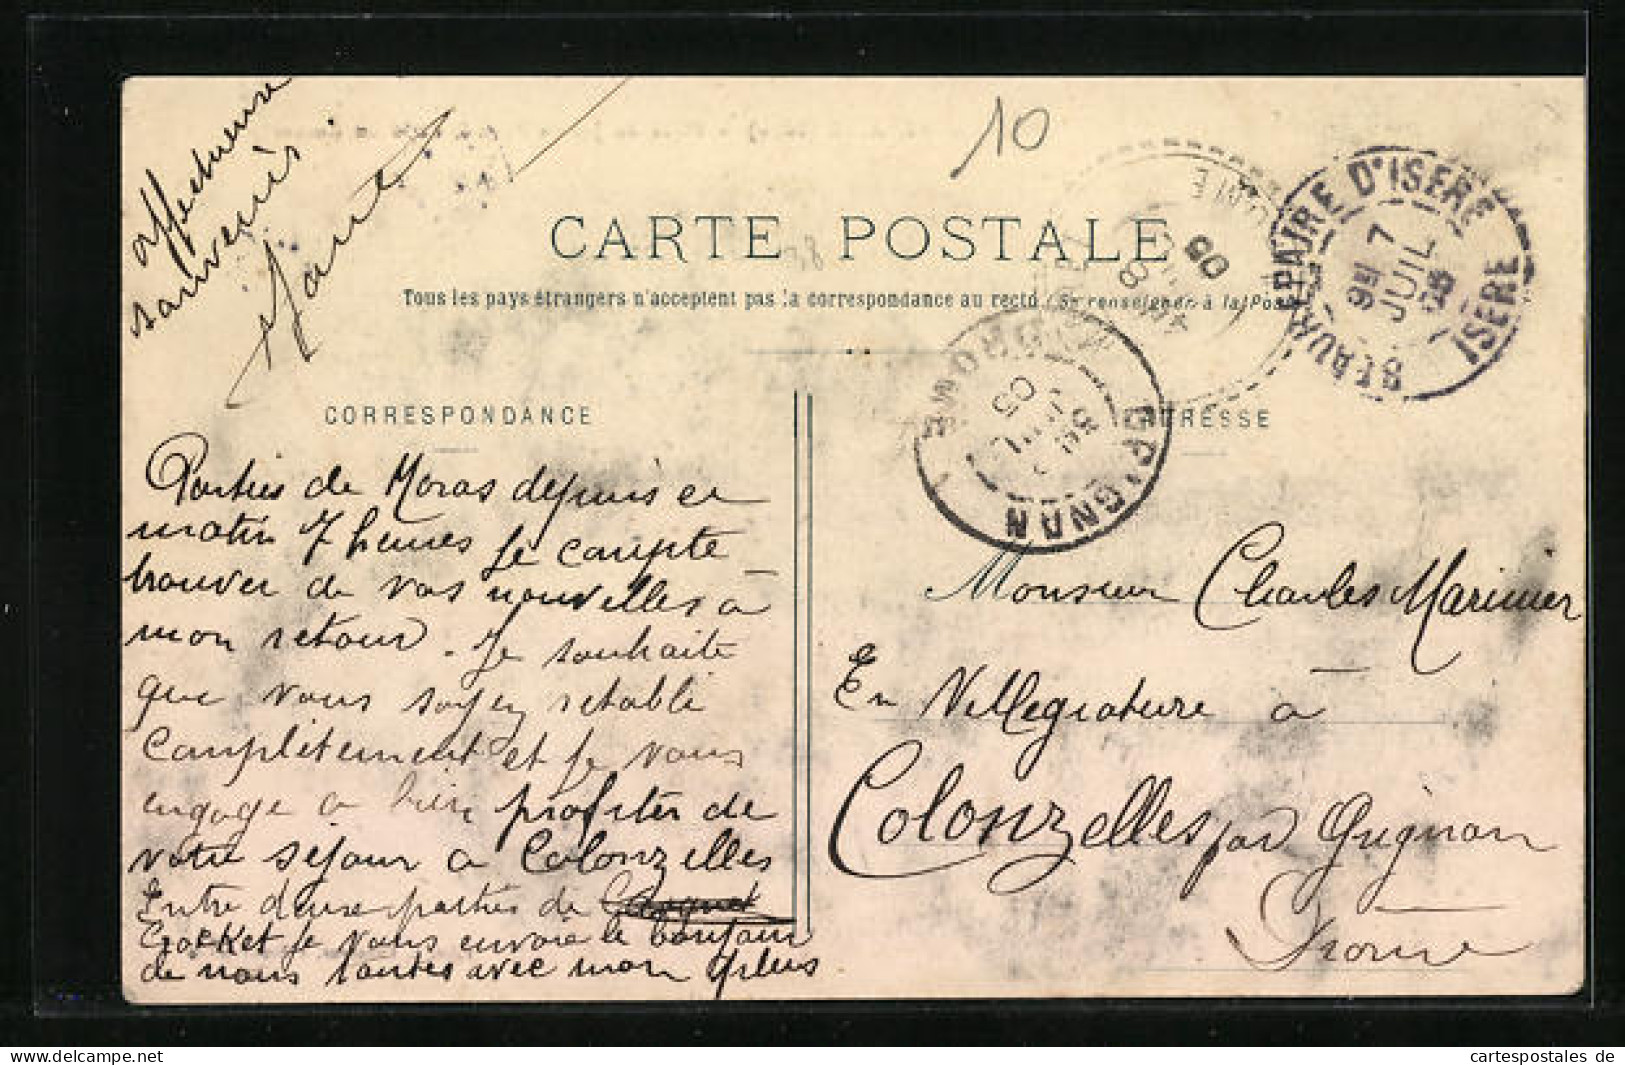 affectueux
souvenir
10
CARTE POSTALE
Tous les pays étrangers n'acceptent pas la correspondance au recto (Se renseigner à la Poste
BEAUREPAIRE D'ISERE
7
JUIL
05
ISERE
GRIGNAN
DROME
8
JUIL
05
CORRESPONDANCE
ADRESSE
Parties de Moras depuis ce
matin 7 heures Je compte
trouver de vos nouvelles à
mon retour. Je souhaite
que vous soyez rétabli
complètement et je vous
engage a bien profiter de
votre séjour a Colonzelles
Entre deux parties de
Crocket je vous envoie le bonjour
de nous toutes avec mon plus
Monsieur Charles Marinier
En Villegiature à
Colonzelles par Grignan
Drome
cartespostales de